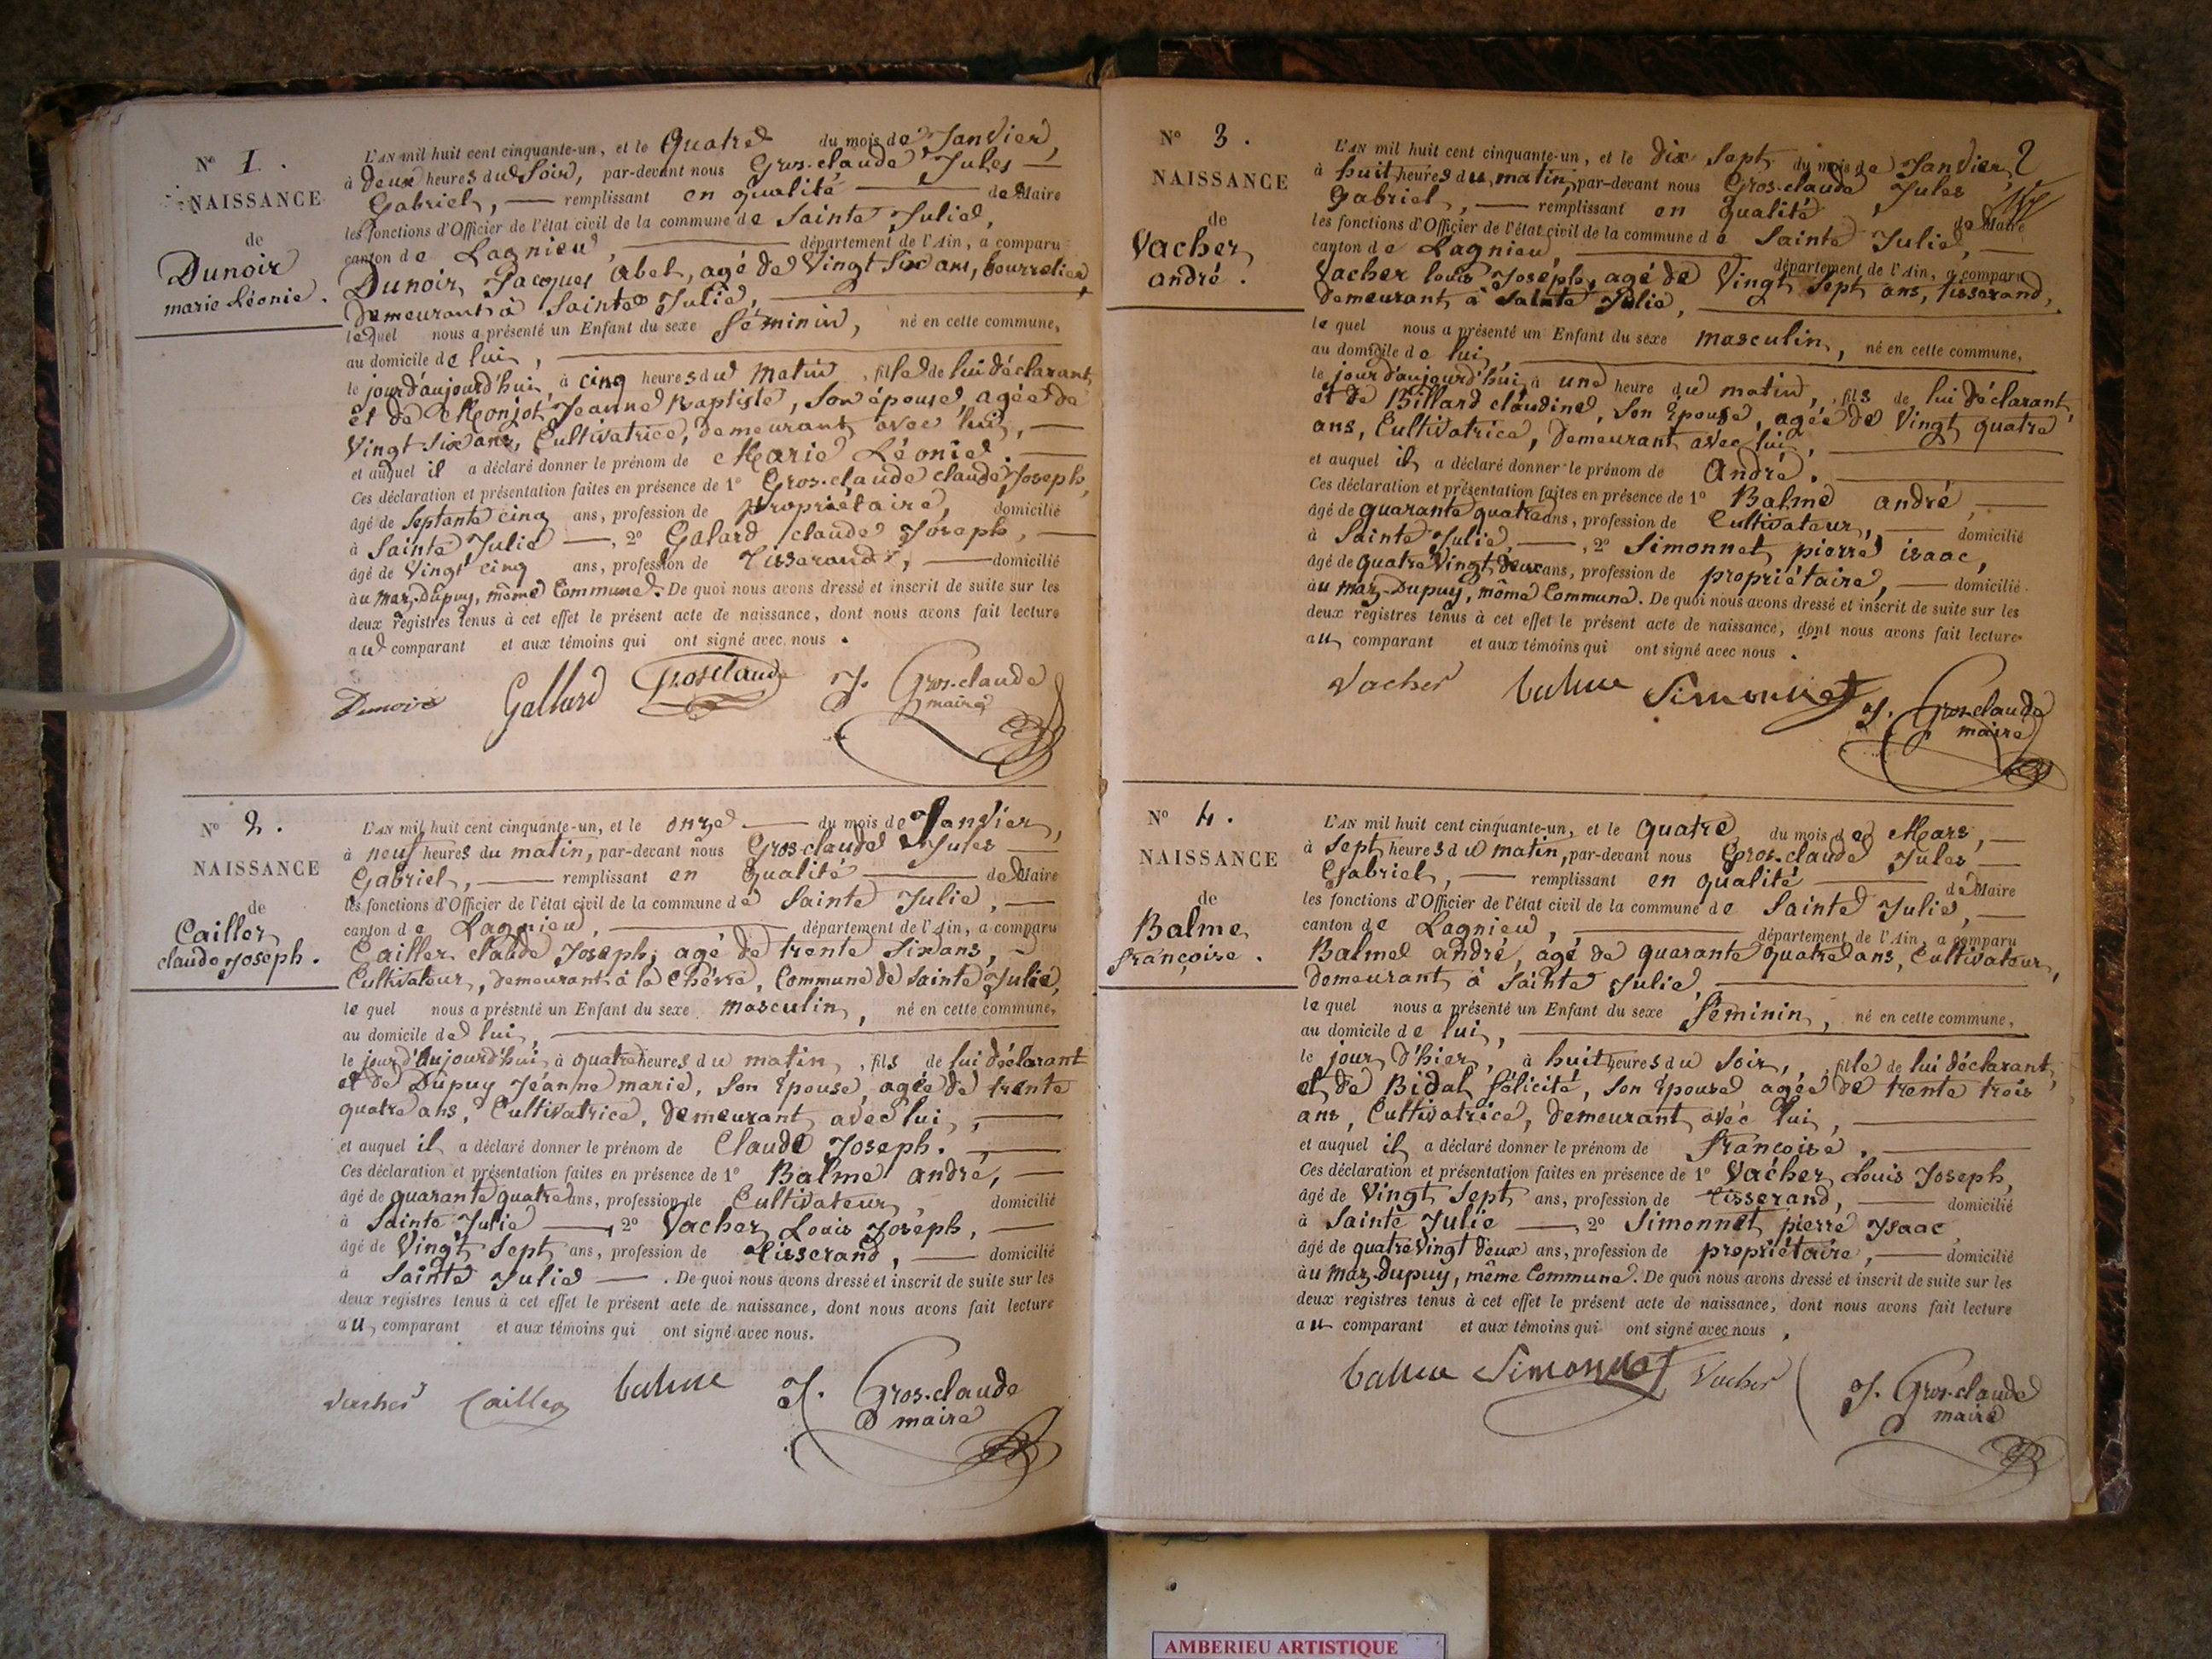 N° 1.
NAISSANCE
de
Dunoir
marie Léonie.
L'AN mil huit cent cinquante-un, et le Quatre du mois de Janvier,
à deux heures du Soir, par-devant nous Gros-claude Jules
Gabriel, remplissant en qualité de Maire
les fonctions d'Officier de l'état civil de la commune de Sainte Julie,
canton de Lagnieu, département de l'Ain, a comparu
Dunoir, Jacques Abel, agé de Vingt Six ans, bourrelier,
demeurant à Sainte Julie,
lequel nous a présenté un Enfant du sexe féminin, né en cette commune,
au domicile de lui,
le jour d'aujourd'hui, à cinq heures du matin, fille de lui déclarant,
et de Monjot, Jeanne Baptiste, Son épouse, agée de
Vingt Six ans, Cultivatrice, demeurant avec lui,
et auquel il a déclaré donner le prénom de Marie Léonie.
Ces déclaration et présentation faites en présence de 1° Gros-claude claude Joseph,
âgé de Septante cinq ans, profession de propriétaire, domicilié
à Sainte Julie, 2° Galard claude Joseph,
âgé de Vingt cinq ans, profession de Tisserand, domicilié
au Mar-Dupuy, même Commune. De quoi nous avons dressé et inscrit de suite sur les
deux registres tenus à cet effet le présent acte de naissance, dont nous avons fait lecture
au comparant et aux témoins qui ont signé avec nous.
Dunoir Gallard Grosclaude J. Gros-claude
maire
N° 2.
NAISSANCE
de
Cailler
claude Joseph.
L'AN mil huit cent cinquante-un, et le onze du mois de Janvier,
à neuf heures du matin, par-devant nous Gros-claude Jules
Gabriel, remplissant en Qualité de Maire
les fonctions d'Officier de l'état civil de la commune de Sainte Julie,
canton de Lagnieu, département de l'Ain, a comparu
Cailler claude Joseph, agé de trente Six ans,
Cultivateur, demeurant à la Chèvre, Commune de Sainte Julie,
le quel nous a présenté un Enfant du sexe masculin, né en cette commune,
au domicile de lui,
le jour d'aujourd'hui, à quatre heures du matin, fils de lui déclarant
et de Dupuy Jeanne marie, Son Epouse, agée de trente
quatre ans, Cultivatrice, demeurant avec lui,
et auquel il a déclaré donner le prénom de Claude Joseph.
Ces déclaration et présentation faites en présence de 1° Balme andré,
âgé de quarante quatre ans, profession de Cultivateur, domicilié
à Sainte Julie, 2° Vacher Louis Joseph,
âgé de Vingt Sept ans, profession de tisserand, domicilié
à Sainte Julie. De quoi nous avons dressé et inscrit de suite sur les
deux registres tenus à cet effet le présent acte de naissance, dont nous avons fait lecture
au comparant et aux témoins qui ont signé avec nous.
Vacher Cailler balme J. Gros-claude
maire
N° 3.
NAISSANCE
de
Vacher
andré.
L'AN mil huit cent cinquante-un, et le dix Sept du mois de Janvier,
à huit heures du matin, par-devant nous Gros-claude Jules
Gabriel, remplissant en qualité de Maire
les fonctions d'Officier de l'état civil de la commune de Sainte Julie,
canton de Lagnieu département de l'Ain, a comparu
Vacher louis Joseph, agé de Vingt Sept ans, tisserand,
demeurant à Sainte Julie,
le quel nous a présenté un Enfant du sexe masculin, né en cette commune,
au domicile de lui,
le jour d'aujourd'hui, à une heure du matin, fils de lui déclarant,
et de Billard claudine, Son Epouse, agée de Vingt quatre
ans, Cultivatrice, demeurant avec lui,
et auquel il a déclaré donner le prénom de André.
Ces déclaration et présentation faites en présence de 1° Balme andré,
âgé de quarante quatre ans, profession de Cultivateur, domicilié
à Sainte Julie, 2° Simonnet pierre isaac,
âgé de quatre Vingt deux ans, profession de propriétaire, domicilié
au Mar-Dupuy, même Commune. De quoi nous avons dressé et inscrit de suite sur les
deux registres tenus à cet effet le présent acte de naissance, dont nous avons fait lecture
au comparant et aux témoins qui ont signé avec nous.
Vacher balme Simonnet J. Gros-claude
maire
N° 4.
NAISSANCE
de
Balme
françoise.
L'AN mil huit cent cinquante-un, et le quatre du mois de Mars,
à Sept heures du matin, par-devant nous Gros-claude Jules
Gabriel, remplissant en qualité de Maire
les fonctions d'Officier de l'état civil de la commune de Sainte Julie,
canton de Lagnieu, département de l'Ain, a comparu
Balme andré, agé de quarante quatre ans, Cultivateur,
demeurant à Sainte Julie,
le quel nous a présenté un Enfant du sexe féminin, né en cette commune,
au domicile de lui,
le jour d'hier, à huit heures du Soir, fille de lui déclarant,
et de Bidal félicité, Son Epouse agée de trente trois
ans, Cultivatrice, demeurant avec lui,
et auquel il a déclaré donner le prénom de françoise.
Ces déclaration et présentation faites en présence de 1° Vacher Louis Joseph,
âgé de Vingt Sept ans, profession de tisserand, domicilié
à Sainte Julie, 2° Simonnet pierre Ysaac
âgé de quatre Vingt deux ans, profession de propriétaire, domicilié
au Mar-Dupuy, même Commune. De quoi nous avons dressé et inscrit de suite sur les
deux registres tenus à cet effet le présent acte de naissance, dont nous avons fait lecture
au comparant et aux témoins qui ont signé avec nous.
balme Simonnet Vacher J. Gros-claude
maire
AMBERIEU ARTISTIQUE